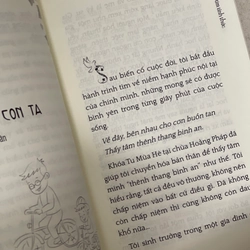 CON TA
Sau biến cố cuộc đời, tôi bắt đầu
hành trình tìm về niềm hạnh phúc nội tại
của chính mình, những mong sẽ có được
bình yên trong từng giây phút của cuộc
sống.
Về đây, bên nhau cho con buôn tan
Thấy tâm thênh thang bình an.
Khóa Tu Mùa Hè tại chùa Hoằng Pháp đã
giúp tôi chuyển hóa bản thân để thấy tâm
mình "thênh thang bình an" như thế. Tôi
hiểu rằng, tất cả đều vô thường không nên
chấp niệm vào bất cứ điều gì. Dã không
còn chấp niệm thì cũng không còn đau
khổ nữa...
Tôi sinh trưởng trong một gia đình